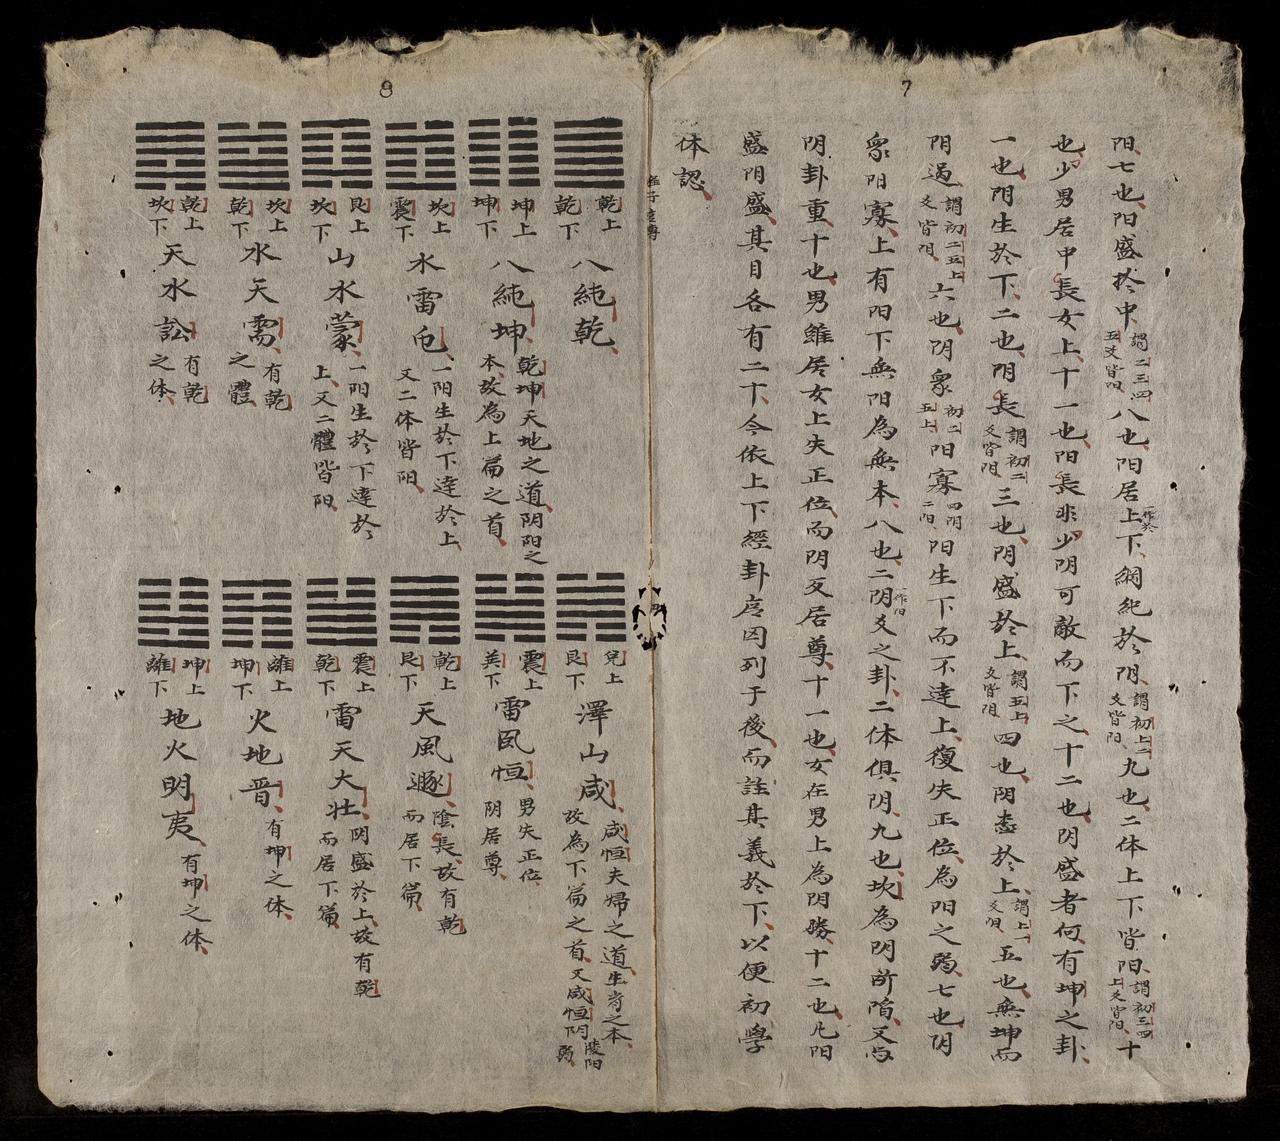 7
阳七也阳盛於中謂二三四五爻皆阳八也阳居上一作於下綱紀於阴謂初上二爻皆阳九也二体上下皆阳謂初三四上爻皆阳十
也少男居中長女上十一也阳長非少阴可敵而下之十二也阴盛者何有坤之卦
一也阴生於下二也阴長謂初二爻皆阴三也阴盛於上謂五上爻皆阴四也阴極於上謂上一爻阴五也無坤而
阴過謂初二五上爻皆阴六也阴衆初二五上阳寡四阴二阳阳生下而不達上復失正位為阳之弱七也阴
衆阳寡上有阳下無阳為無本八也二阴一作阳爻之卦二体俱阴九也坎為阴所陷又与
阴卦重十也男雖居女上失正位而阴爻居尊十一也女在男上為阴勝十二也凡阳
盛阴盛其目各有二十今依上下經卦序因列于後而註其義於下以便初學
体認
8
乾上乾下 八純乾
坤上坤下 八純坤 乾坤天地之道阴阳之本故為上篇之首
坎上震下 水雷屯 一阳生於下達於上又二体皆阳
艮上坎下 山水蒙 一阳生於下達於上又二體皆阳
坎上乾下 水天需 有乾之體
乾上坎下 天水訟 有乾之体
兌上艮下 澤山咸 咸恒夫婦之道生育之本故為下篇之首又咸恒阴陵阳弱
震上巽下 雷風恒 男失正位阴居尊
乾上艮下 天風遯 陰長故有乾而居下篇
震上乾下 雷天大壮 阴盛於上故有乾而居下篇
離上坤下 火地晋 有坤之体
坤上離下 地火明夷 有坤之体